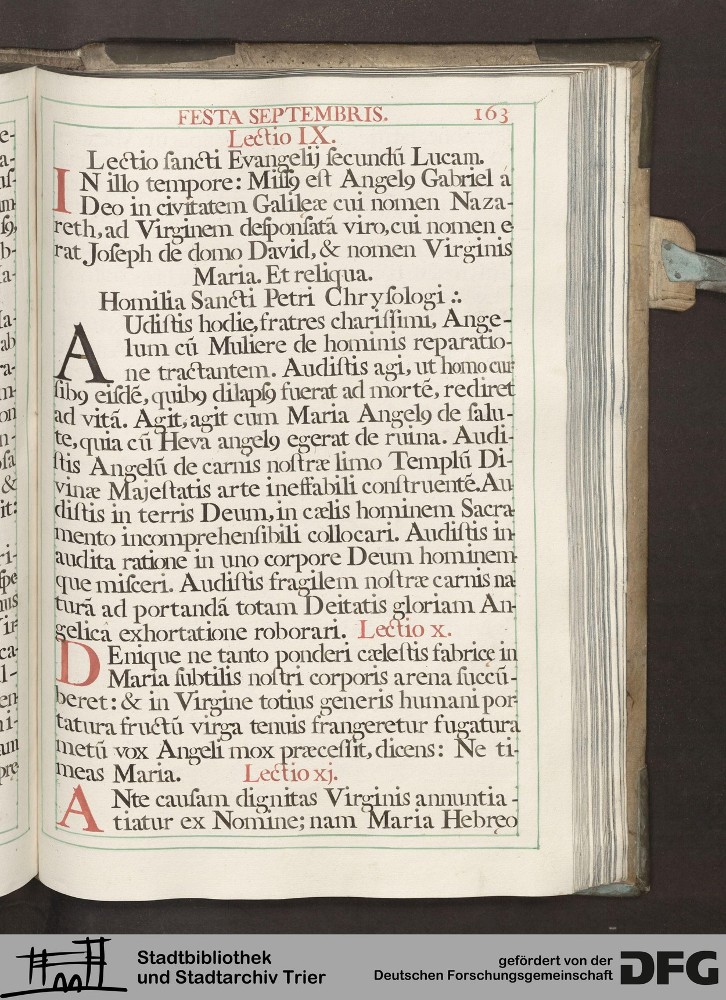 FESTA SEPTEMBRIS. 163
Lectio IX.
Lectio ſancti Evangelij ſecundū Lucam.
IN illo tempore: Miſſꝯ eſt Angelꝯ Gabriel á
Deo in civitatem Galileæ cui nomen Naza-
reth, ad Virginem deſponſatā viro, cui nomen e
rat Joſeph de domo David, & nomen Virginis
Maria. Et reliqua.
Homilia Sancti Petri Chryſologi .:.
AUdiſtis hodie, fratres chariſſimi, Ange-
lum cū Muliere de hominis reparatio-
ne tractantem. Audiſtis agi, ut homo cur
ſibꝯ eiſdē, quibꝯ dilapſꝯ fuerat ad mortē, rediret
ad vitā. Agit, agit cum Maria Angelꝯ de ſalu-
te, quia cū Heva angelꝯ egerat de ruina. Audi-
ſtis Angelū de carnis noſtræ limo Templū Di-
vinæ Majeſtatis arte ineffabili conſtruentē. Au
diſtis in terris Deum, in cælis hominem Sacra
mento incomprehenſibili collocari. Audiſtis in-
audita ratione in uno corpore Deum hominem-
que miſceri. Audiſtis fragilem noſtræ carnis na
turā ad portandā totam Deitatis gloriam An-
gelicâ exhortatione roborari. Lectio x.
DEnique ne tanto ponderi cæleſtis fabricę in
Maria ſubtilis noſtri corporis arena ſuccū-
beret: & in Virgine totius generis humani por-
tatura fructū virga tenuis frangeretur fugatura
metū vox Angeli mox præceſſit, dicens: Ne ti-
meas Maria. Lectio xj.
ANte cauſam dignitas Virginis annuntia-
tiatur ex Nomine; nam Maria Hebręo
e-
a-
uſ-
m
ſꝯ,
b-
la-
Ia-
ab
ra-
m-
on
n-
ſa
&
it:
ri-
ſpe
nus
ir-
ca-
l-
en
ni-
am
pre
Stadtbibliothek
und Stadtarchiv Trier
gefördert von der
Deutschen Forschungsgemeinschaft
DFG